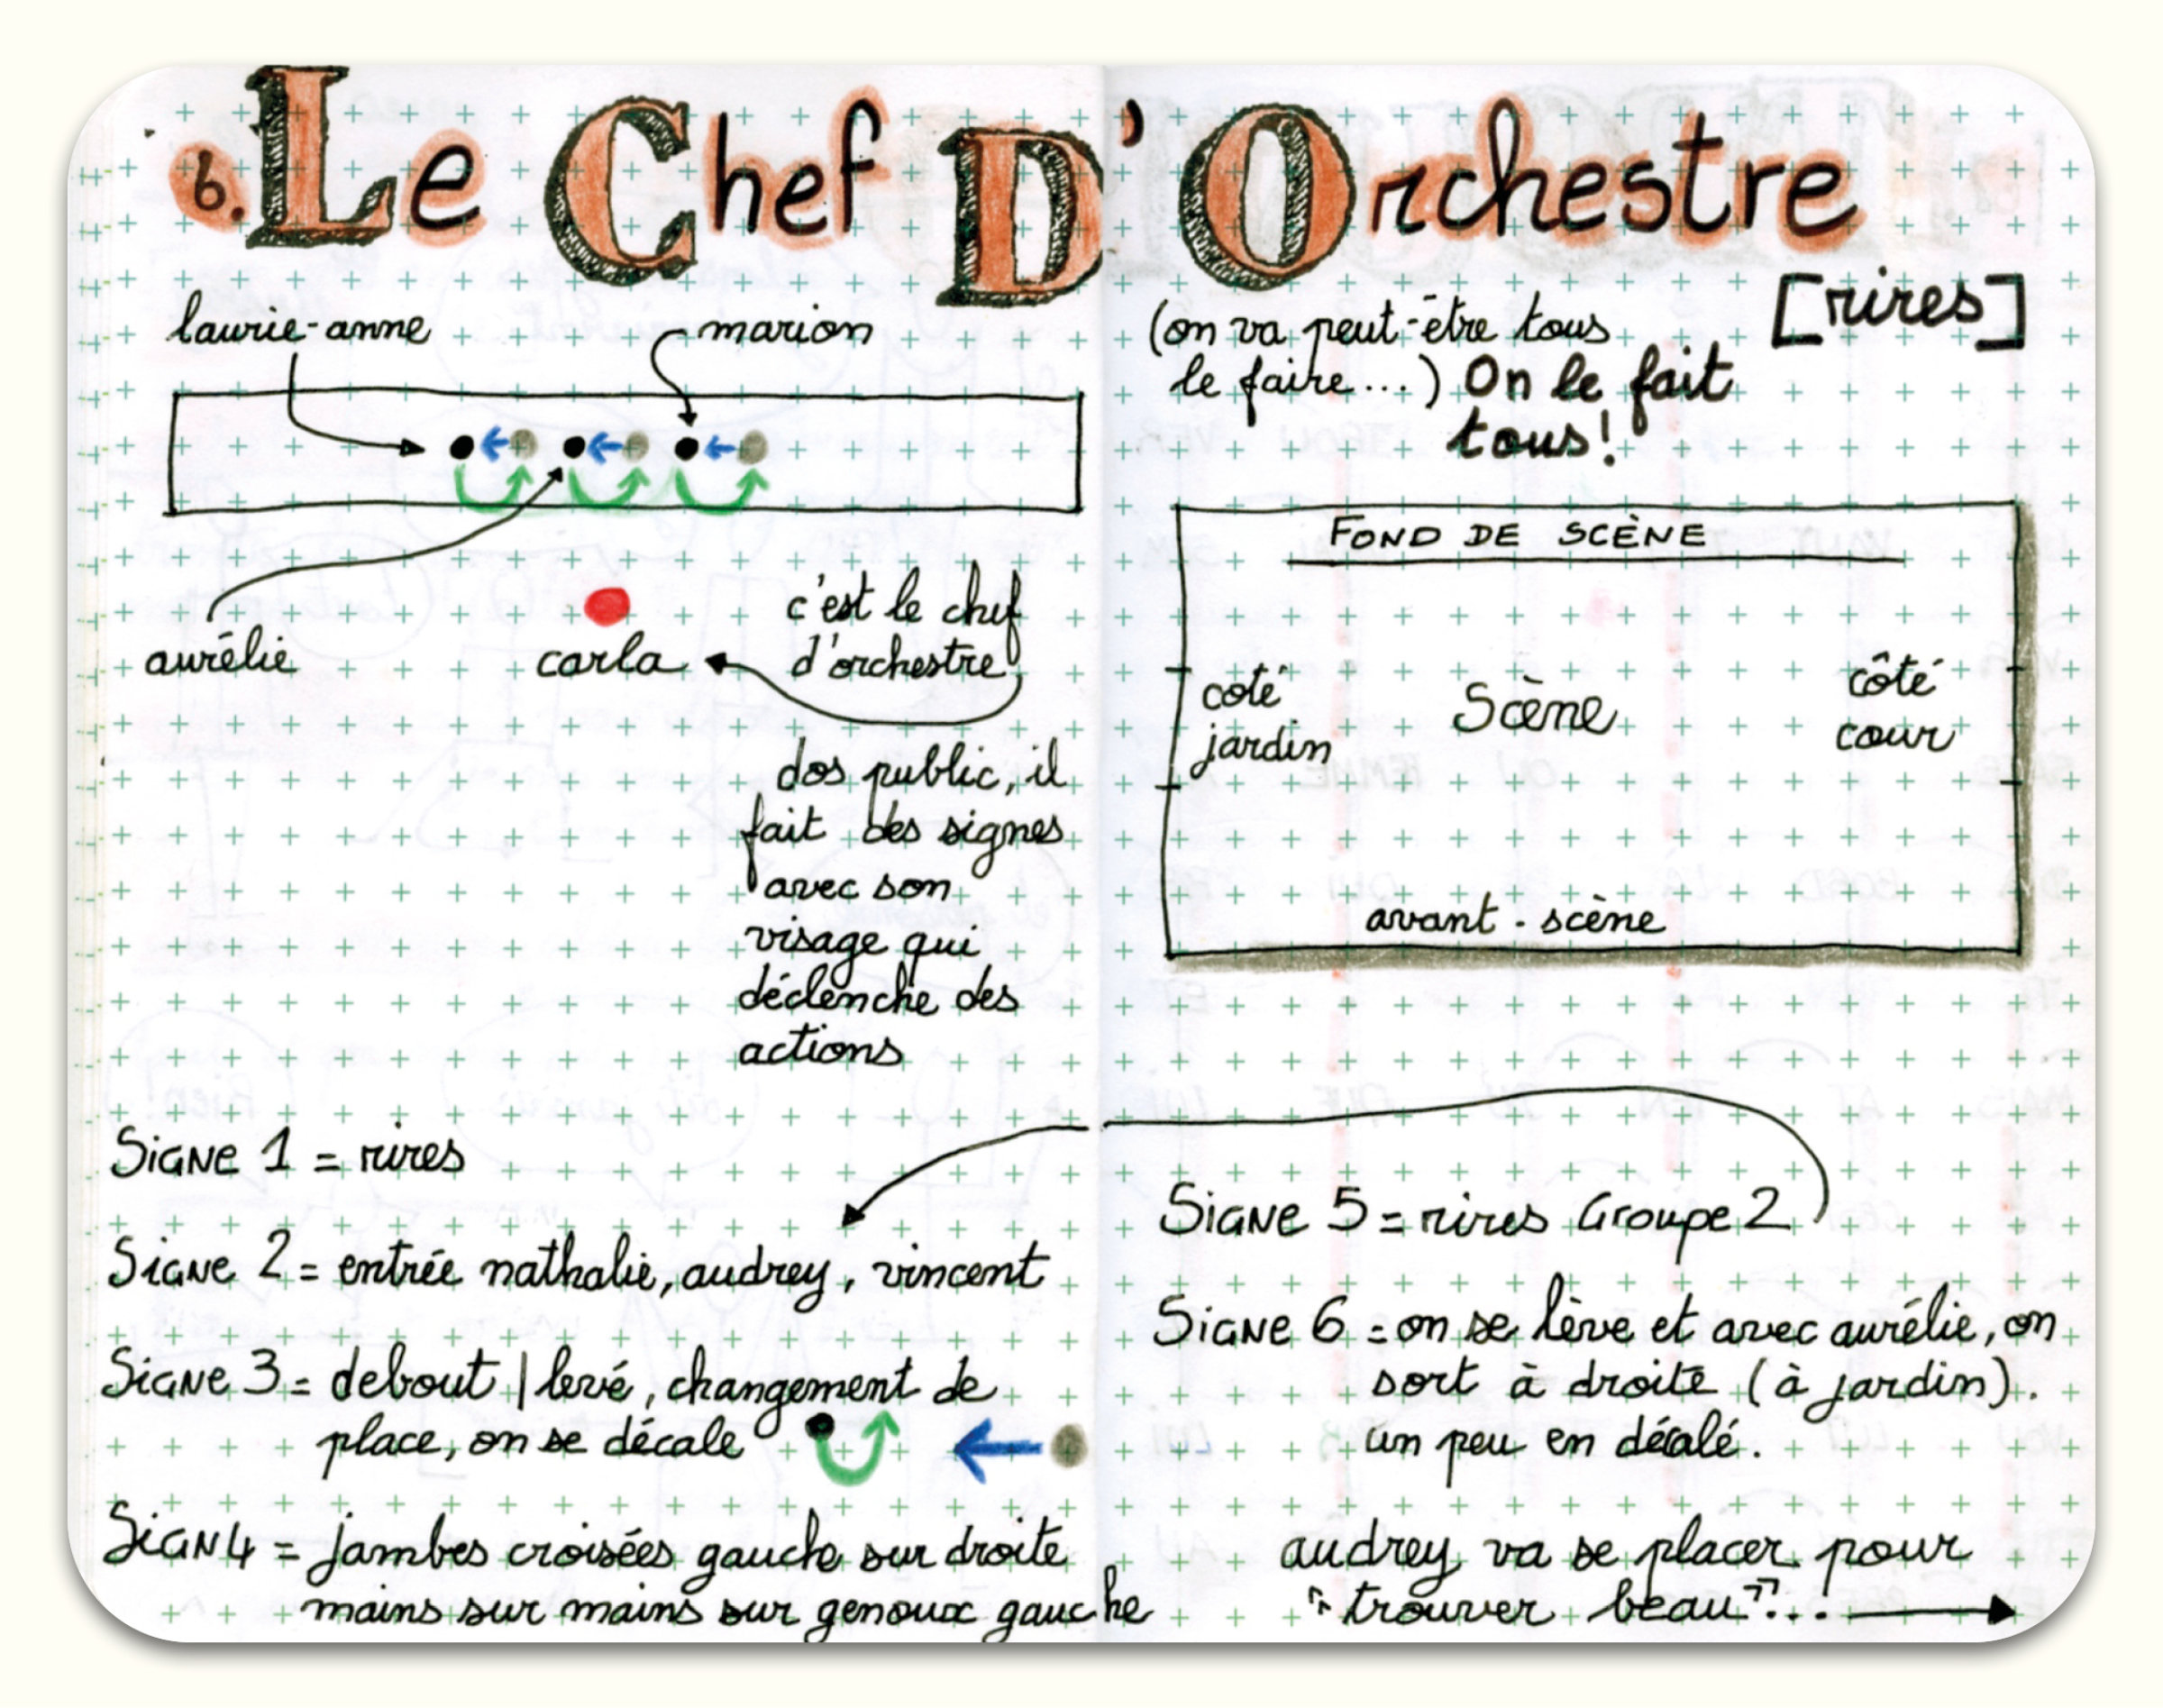 6. Le Chef D'Orchestre
laurie-anne
marion
aurélie
carla
c'est le chef
d'orchestre
dos public, il
fait des signes
avec son
visage qui
déclenche des
actions
Signe 1 = rires
Signe 2 = entrée nathalie, audrey, vincent
Signe 3 = debout | levé, changement de
place, on se décale
Sign 4 = jambes croisées gauche sur droite
mains sur mains sur genoux gauche
[rires]
(on va peut-être tous
le faire...) On le fait
tous!
FOND DE SCÈNE
coté
jardin
Scène
côté
cour
avant-scène
Signe 5 = rires Groupe 2
Signe 6 = on se lève et avec aurélie, on
sort à droite (à jardin).
un peu en décalé.
audrey va se placer pour
"trouver beau"...